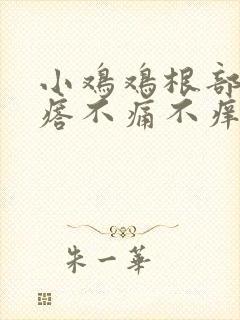 小鸡鸡根部
痞不痛不痒
朱一華